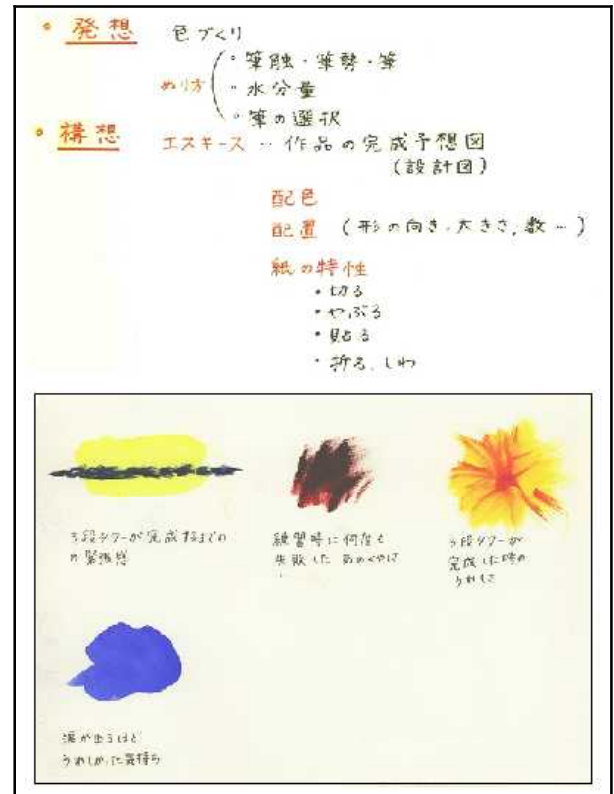 ・発想 色づくり
ぬり方
・筆触・筆勢・筆
・水分量
・筆の選択
・構想 エスキース … 作品の完成予想図
(設計図)
配色
配置 (形の向き、大きさ、数…)
紙の特性
・切る
・やぶる
・貼る
・折る、しわ
5段タワーが完成するまでの
緊張感
練習時に何度も
失敗した
5段タワーが
完成した時の
うれしさ
涙が出るほど
うれしかった気持ち